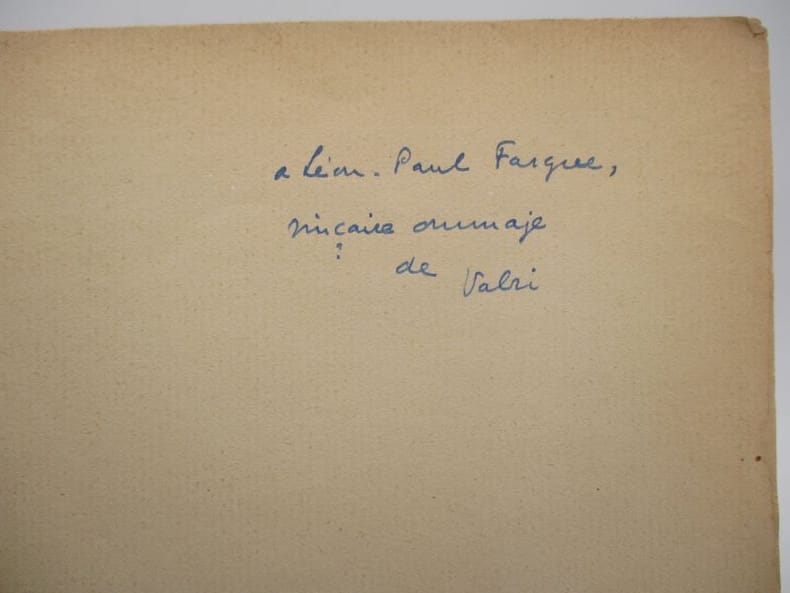 a Léon-Paul Fargue,
sinçaire ommaje
?
de Valri